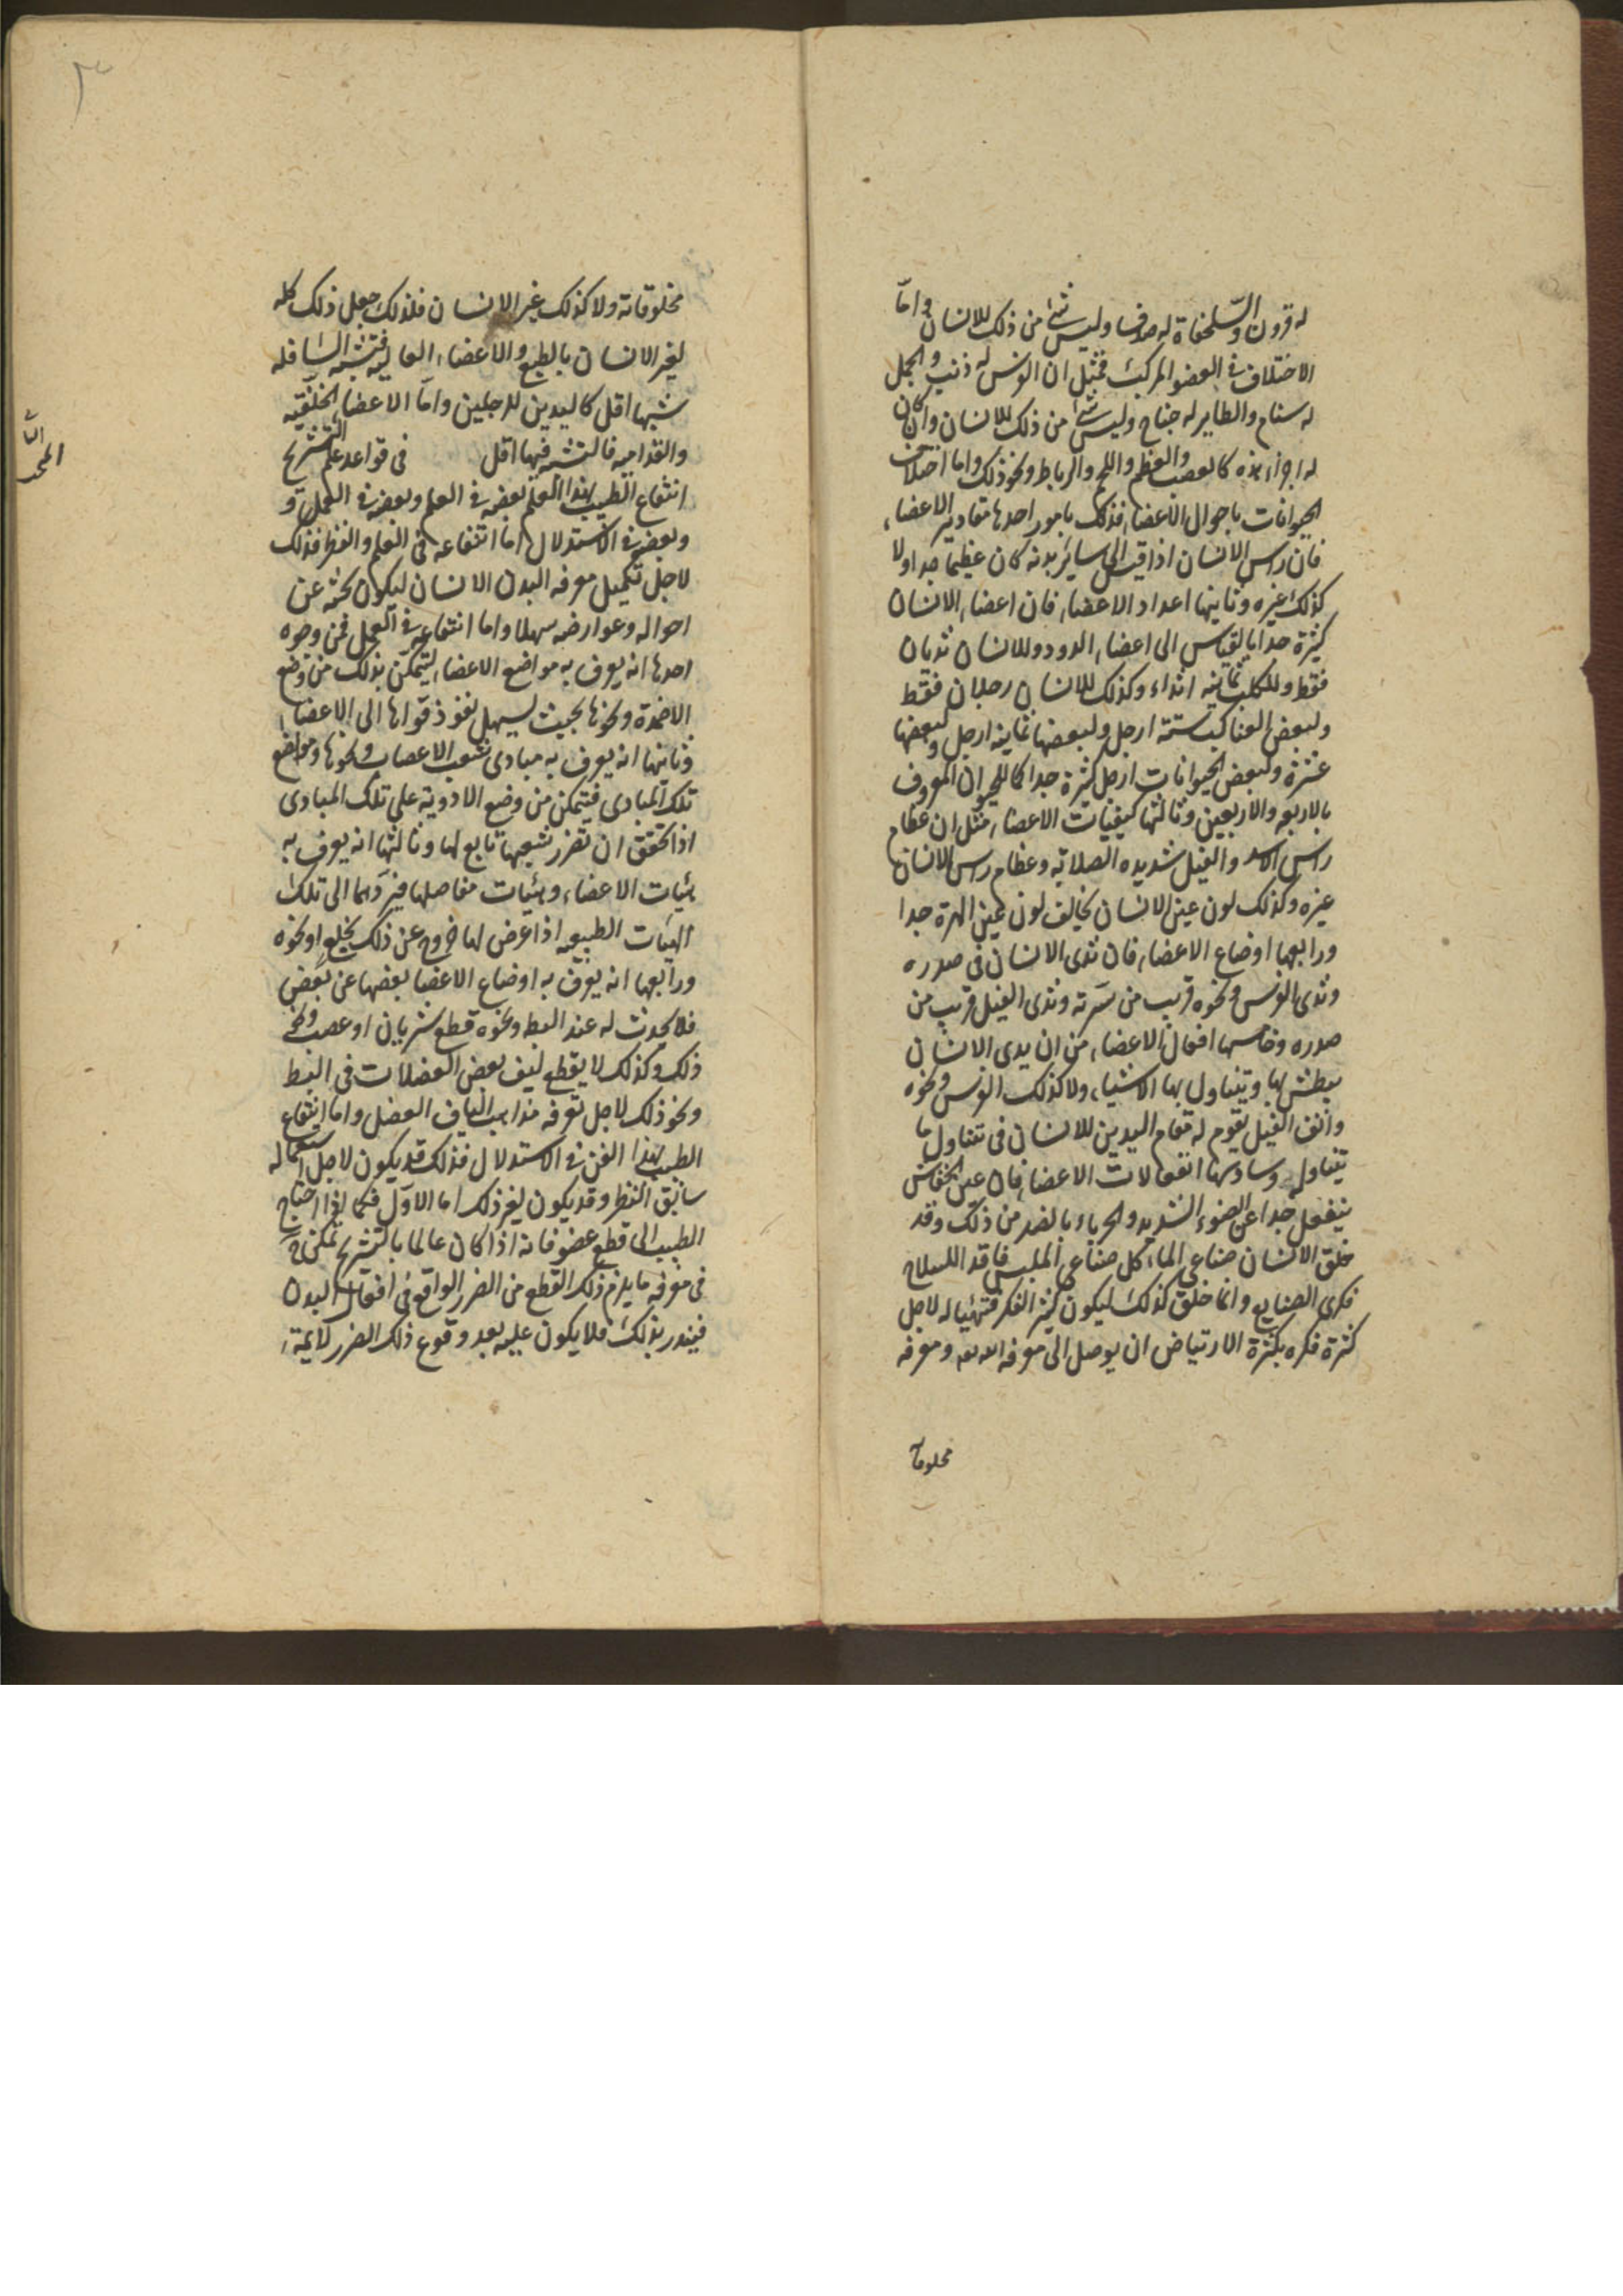 له قرون والسلحفاة له صدفا وليس شئ من ذلك للانسان واما
الاختلاف فى العضو المركب فمثل ان الفرس له ذنب والجمل
له سنام والطاير له جناح وليس شئ من ذلك للانسان وان كان
له اجزاء هذه كالعصب والعظم واللحم والرباط ونحو ذلك واما اختلاف
الحيوانات باحوال الاعضاء فذلك بامور احدها مقادير الاعضاء
فان راس الانسان اذا قيس الى ساير بدنه كان عظيما جدا ولا
كذلك غيره وثانيها اعداد الاعضاء فان اعضاء الانسان
كثيرة جدا بالقياس الى اعضاء الدود وللانسان ثديان
فقط وللكلب ثمانيه اثداء وكذلك للانسان رجلان فقط
ولبعض العناكب ستة ارجل ولبعضها ثمانيه ارجل ولبعضها
عشرة ولبعض الحيوانات ارجل كثيرة جدا كالحيوان المعروف
بالاربعه والاربعين وثالثها كيفيات الاعضاء مثل ان عظام
راس الاسد والفيل شديده الصلابه وعظام راس الانسان
غيره وكذلك لون عين الانسان يخالف لون عين الهرة جدا
ورابعها اوضاع الاعضاء فان ثدى الانسان فى صدره
وثدى الفرس ونحوه قريب من سرته وثدى الفيل قريب من
صدره وخامسها افعال الاعضاء من ان يدى الانسان
يبطش بها ويتناول بها الاشياء ولا كذلك الفرس ونحوه
وانف الفيل يقوم له مقام اليدين للانسان فى تناول ما
يتناوله وسادسها انفعالات الاعضاء فان عين الخفاش
ينفعل جدا عن الضوء الشديد والحرباء بالضد من ذلك وقد
خلق الانسان صناعى الماء كل صناعى الملبس فاقد السلاح
فكرى الصنايع وانما خلق كذلك ليكون كثير الفكر فتهيا له لاجل
كثرة فكره بكثرة الارتياض ان يوصل الى معرفه الله تعه ومعرفه
مخلوقا
٣
مخلوقاته ولا كذلك غير الانسان فلذلك جعل ذلك كله
لغير الانسان بالطبع والاعضاء العاليه فتشبه السافله
شبها اقل كاليدين للرجلين واما الاعضاء الخلقيه
والقداميه فالتشبه فيها اقل فى قواعد علم التشريح
انتفاع الطبيب بهذا العلم بعضه فى العلم وبعضه فى العمل و
وبعضه فى الاستدلال اما انتفاعه فى العلم والنظر فذلك
لاجل تكميل معرفه البدن الانسان ليكون بحثه عن
احواله وعوارضه سهلا واما انتفاعه فى العمل فمن وجوه
احدها انه يعرف به مواضع الاعضاء ليتمكن بذلك من وضع
الاضمدة ونحوها بحيث يسهل نفوذ قواها الى الاعضاء
وثانيها انه يعرف به مبادى شعب الاعصاب ونحوها ومواضع
تلك المبادى فيتمكن من وضع الادوية على تلك المبادى
اذا تحقق ان تضرر شعبها تابع لها وثالثها انه يعرف به
هئيات الاعضاء وهئيات مفاصلها فيردها الى تلك
الهئيات الطبيعيه اذا عرض لها خروج عن ذلك بخلع او نحوه
ورابعها انه يعرف به اوضاع الاعضا بعضها عن بعض
فلا يحدث له عند البط ونحوه قطع شريان او عصب ونحو
ذلك وكذلك لا يقطع ليف بعض العضلات فى البط
ونحو ذلك لاجل تعرفه مذاهب الياف العضل واما انتفاع
الطبيب بهذا الفن فى الاستدلال فذلك قد يكون لاجل استعماله
سابق النظر وقد يكون لغير ذلك اما الاول فكما اذا احتاج
الطبيب الى قطع عضو فانه اذا كان عالما بالتشريح تمكن ح
فى معرفه ما يلزم ذلك القطع من الضرر الواقع فى افعال البدن
فينذر بذلك فلا يكون عليه بعد وقوع ذلك الضرر لايمة